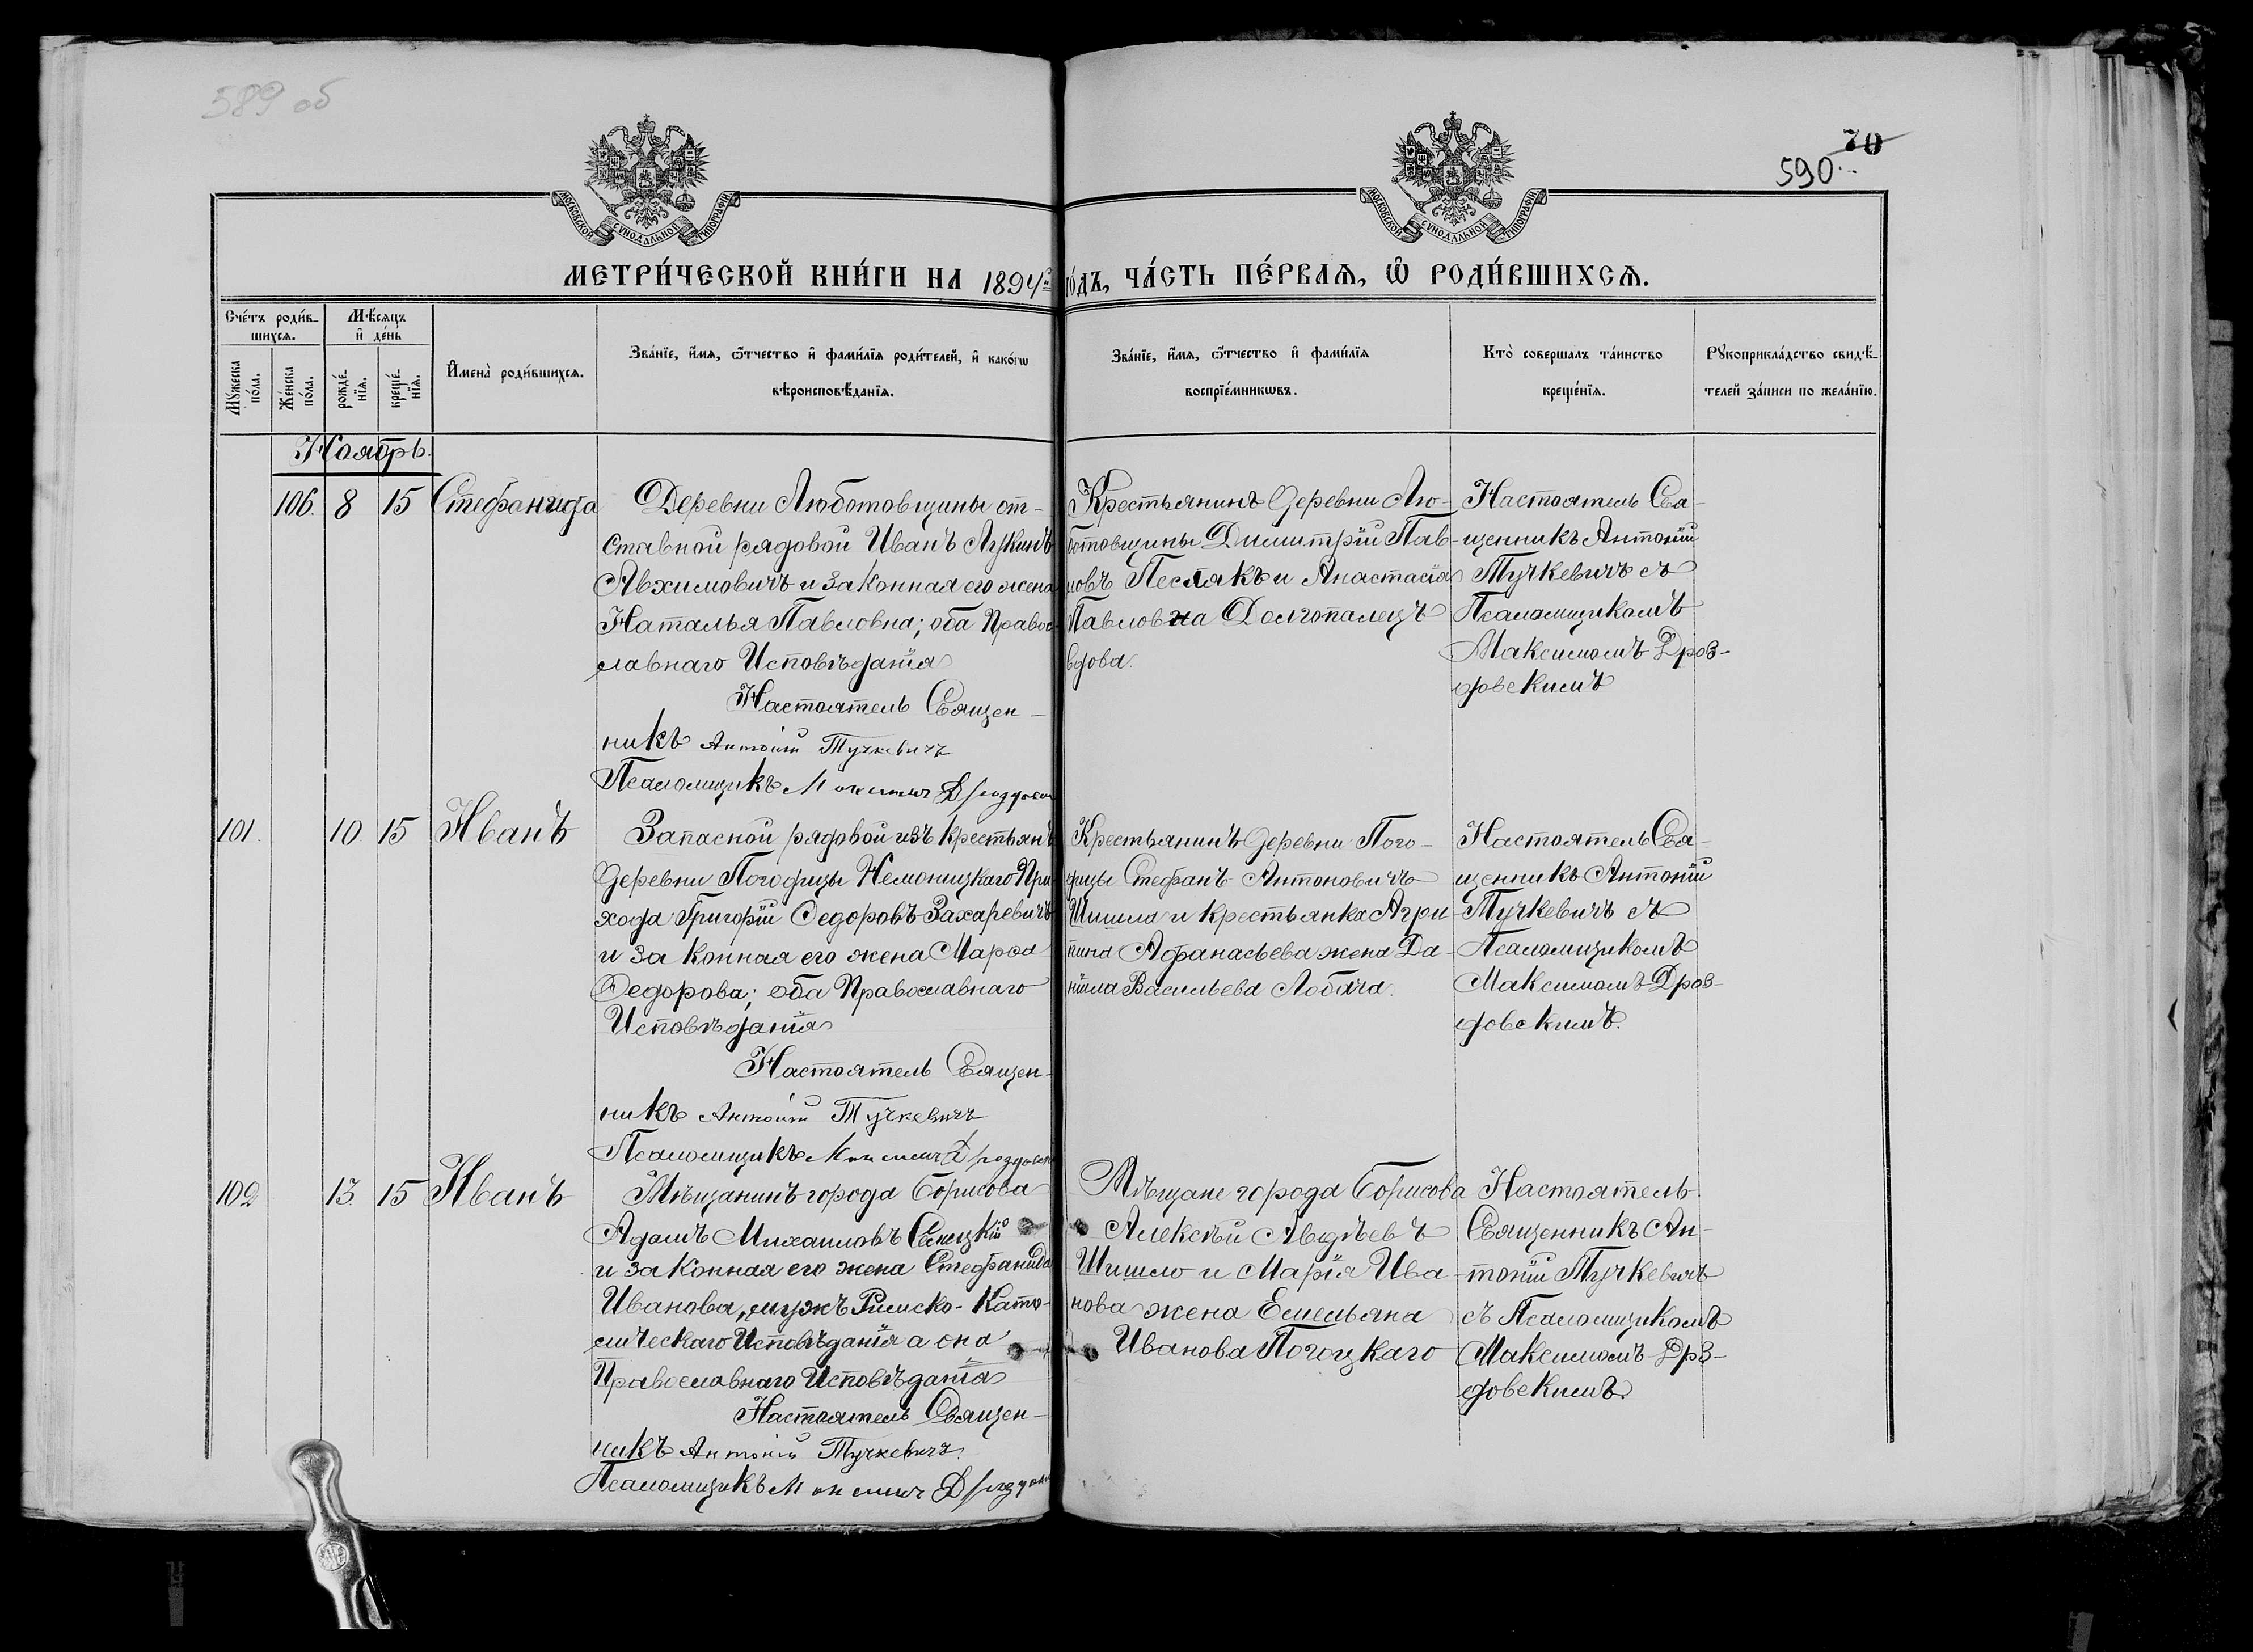 589 об
70
590.
МОСКОВСКОЙ СѴНОДАЛЬНОЙ ТИПОГРАФІИ
МОСКОВСКОЙ СѴНОДАЛЬНОЙ ТИПОГРАФІИ
МЕТРИ́ЧЕСКОЙ КНИ́ГИ НА 1894й го́дъ, ЧА́СТЬ ПЕ́РВАѦ, Ѽ РОДИ́ВШИХСѦ.
Сче́тъ роди́в-
шихсѧ.
Мꙋ́жеска по́ла.
Же́нска по́ла.
Мѣ́сѧцъ
и҆ де́нь
рожде́-нїѧ.
креще́-нїѧ.
И҆мена̀ роди́вшихсѧ.
Зва́нїе, и҆́мѧ, ѻ҆́тчество и҆ фами́лїѧ роди́телей, и҆ како́гѡ
вѣроисповѣ́данїѧ.
Зва́нїе, и҆́мѧ, ѻ҆́тчество и҆ фами́лїѧ
воспрїе́мникѡвъ.
Кто̀ соверша́лъ та́инство
креще́нїѧ.
Рꙋкоприкла́дство свидѣ́-
телей за́писи по жела́нїю.
Ноябрь.
106. 8 15 Стефанида
Деревни Люботовщины от-
ставной рядовой Иванъ Лукинъ
Авхимовичъ и законная его жена
Наталья Павловна; оба Правос-
лавнаго Исповѣданія
Настоятель Священ-
никъ Антоній Тучкевичъ
Псаломщикъ Максимъ Дроздовск
Крестьянинъ Деревни Лю-
ботовщины Димитрій Пав-
ловъ Песлякъ и Анастасія
Павловна Долгопалецъ
вдова.
Настоятель Свя-
щенникъ Антоній
Тучкевичъ съ
Псаломщикомъ
Максимомъ Дроз-
довскимъ
101. 10 15 Иванъ
Запасной рядовой изъ крестьянъ
Деревни Погодицы Немоницкаго При-
хода Григорій Федоровъ Захаревичъ
и законная его жена Марѳа
Федорова; оба Православнаго
Исповѣданія
Настоятель Священ-
никъ Антоній Тучкевичъ
Псаломщикъ Максимъ Дроздовск
Крестьянинъ Деревни Пого-
дицы Стефанъ Антоновичъ
Шишла и крестьянка Агри-
пина Афанасьева жена Да-
ніила Васильева Лобача.
Настоятель Свя-
щенникъ Антоній
Тучкевичъ съ
Псаломщикомъ
Максимомъ Дроз-
довскимъ.
102 13. 15 Иванъ
Мѣщанинъ города Борисова
Адамъ Михаиловъ
и законная его жена Стефанида
Иванова, мужъ Римско-Като-
лическаго Исповѣданія а она
Православнаго Исповѣданія
Настоятель Священ-
никъ Антоній Тучкевичъ
Псаломщикъ Максимъ Дроздовс
Мѣщане города Борисова
Алексѣй Авдѣевъ
Шишло и Марія Ива-
нова жена Емельяна
Иванова Погоцкаго
Настоятель
Священникъ Ан-
тоній Тучкевичъ
съ Псаломщикомъ
Максимомъ Дрз-
довскимъ.